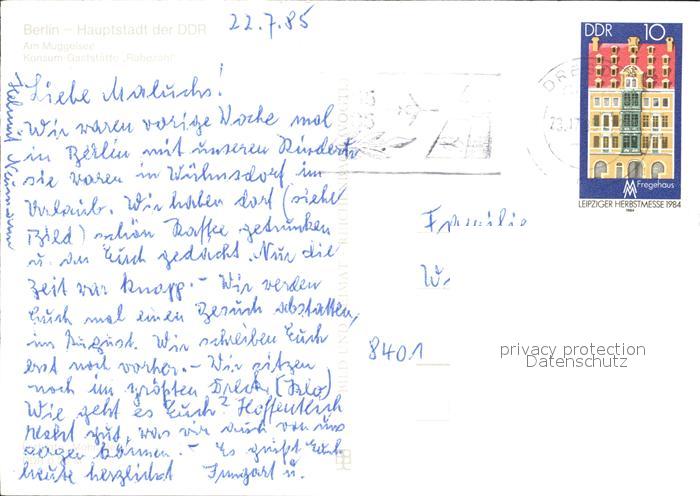 22.7.85
Berlin – Hauptstadt der DDR
Am Müggelsee
Konsum-Gaststätte „Rübezahl“
Liebe Maluchs!
Wir waren vorige Woche mal
in Berlin mit unseren Kindern
sie waren in Wühnsdorf im
Urlaub. Wir haben dort (siehe
Bild) schön Kaffee getrunken
u. an Euch gedacht. Nur die
Zeit war knapp. – Wir werden
Euch mal einen Besuch abstatten,
im August. Wir schreiben Euch
erst noch vorher. – Wir sitzen
noch im größten Dreck,
Wie geht es Euch? Hoffentlich
recht gut, was wir auch von uns
sagen können. – Es grüßt Euch
heute herzlichst Irmgart u.
Helmut Neumann
DDR 10
Fregehaus
LEIPZIGER HERBSTMESSE 1984
1984
Familie
W
8401
privacy protection
Datenschutz